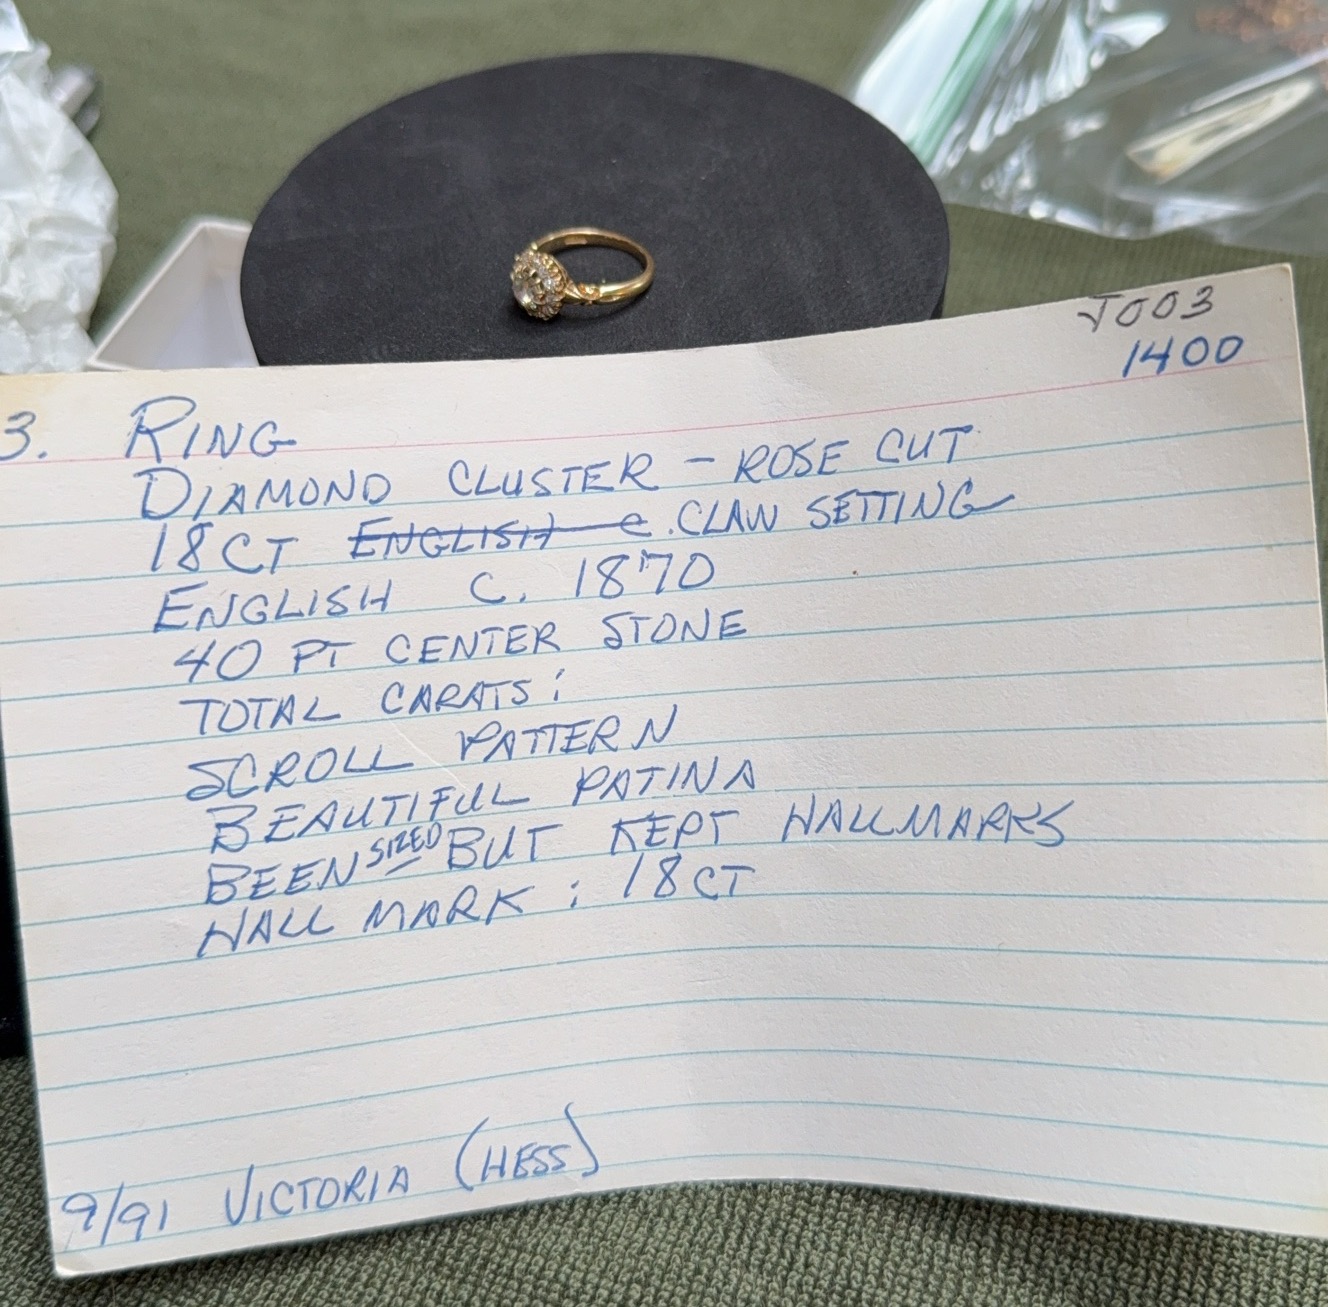 J003
1400
3. RING
DIAMOND CLUSTER - ROSE CUT
18CT ENGLISH C. CLAW SETTING
ENGLISH C. 1870
40 PT CENTER STONE
TOTAL CARATS:
SCROLL PATTERN
BEAUTIFUL PATINA
BEEN SIZED BUT KEPT HALLMARKS
HALL MARK : 18CT
9/91 VICTORIA (HESS)